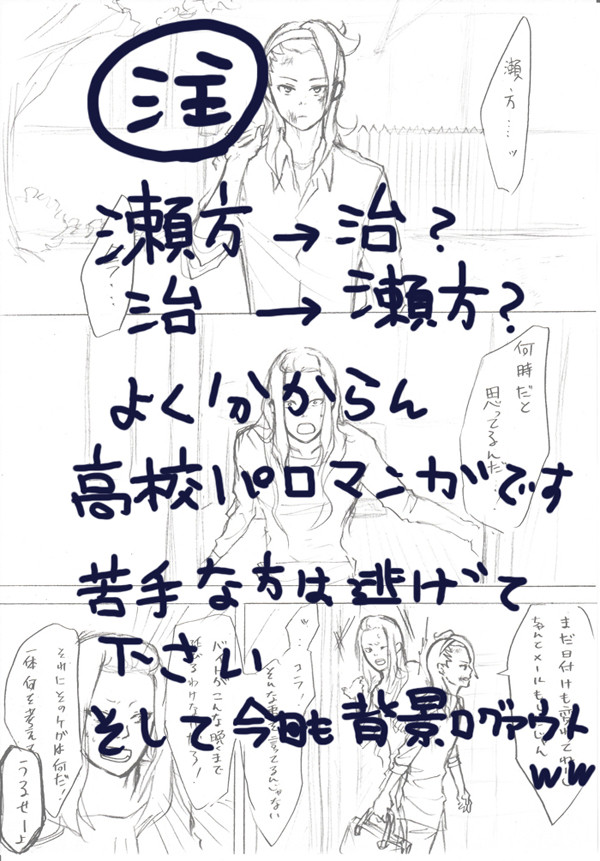 注
瀬方→治?
治→瀬方?
よく分からん
高校パロマンガです
苦手な方は逃げて
下さい
そして今日も背景ログアウト
ww
瀬方……ッ
何時だと
思ってるんだ……
まだ日付けも変わってねーし
コラ!
そんな事を言ってるんじゃない
バイトがこんな遅くまで
それにそのケガは何だ!
一体何を考えて
うるせーよ